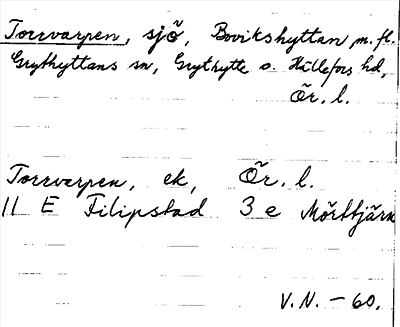 Torrvarpen, sjö, Bovikshyttan m. fl.
Grythyttans sn, Grythytte o. Hällefors hd,
Ör. l.
Torrvarpen, ek, Ör. l.
11 E Filipstad 3 e Mörttjärn
V.N. - 60.